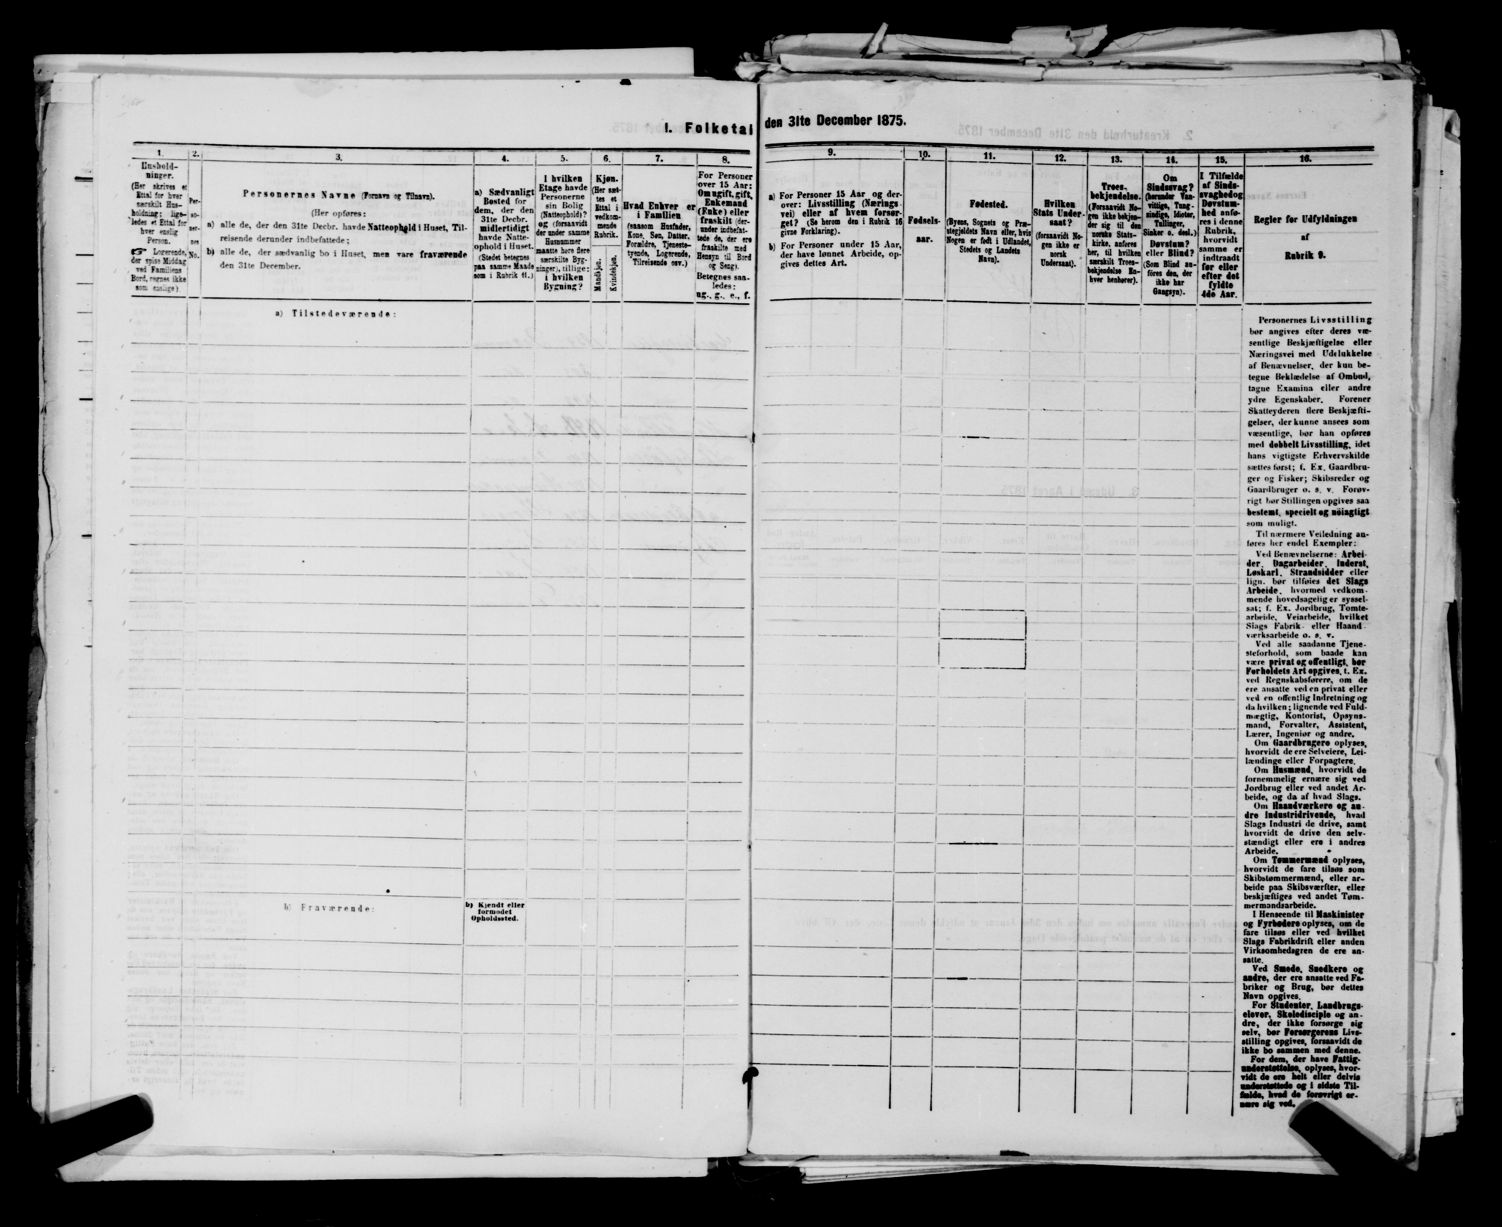 I. Folketal
den 31te December 1875.
1.
Hushold-
ninger.
(Her skrives et
Ettal for hver
særskilt Hus-
holdning; lige-
ledes et Ettal for
hver enslig
Person.
☞ Logerende,
der spise Middag
ved Familiens
Bord, regnes ikke
som enslige).
2.
Per-
so-
ner-
nes
No.
3.
Personernes Navne (Fornavn og Tilnavn).
(Her opføres:
a) alle de, der den 31te Decbr. havde Natteophold i Huset, Til-
reisende derunder indbefattede;
b) alle de, der sædvanlig bo i Huset, men vare fraværende
den 31te December.
4.
a) Sædvanligt
Bosted for
dem, der den
31te Decbr.
midlertidigt
havde Natte-
ophold i Huset.
(Stedet betegnes
paa samme Maade
som i Rubrik 11.)
5.
I hvilken
Etage havde
Personerne
sin Bolig
(Natteophold)?
og (forsaavidt
der under samme
Husnummer
maatte høre flere
særskilte Byg-
ninger), tillige:
i hvilken
Bygning?
6.
Kjøn.
(Her sæt-
tes et
Ettal i
vedkom-
mende
Rubrik.
Mandkjøn.
Kvindekjøn.
7.
Hvad Enhver er
i Familien
(saasom Husfader,
Kone, Søn, Datter,
Forældre, Tjeneste-
tyende, Logerende,
Tilreisende osv.)
8.
For Personer
over 15 Aar:
Om ugift, gift,
Enkemand
(Enke) eller
fraskilt (der-
under indbefat-
tede de, der ere
fraskilte med
Hensyn til Bord
og Seng).
Betegnes saa-
ledes:
ug., g., e., f.
9.
a) For Personer 15 Aar og der-
over: Livsstilling (Nærings-
vei) eller af hvem forsør-
get? (Se herom den i Rubrik 16
givne Forklaring).
b) For Personer under 15 Aar,
der have lønnet Arbeide, op-
gives dettes Art.
10.
Fødsels-
aar.
11.
Fødested.
(Byens, Sognets og Præ-
stegjeldets Navn eller, hvis
Nogen er født i Udlandet,
Stedets og Landets
Navn).
12.
Hvilken
Stats Under-
saat?
(forsaavidt No-
gen ikke er
norsk
Undersaat).
13.
Troes-
bekjendelse.
(Forsaavidt No-
gen ikke bekjen-
der sig til den
norske Stats-
kirke, anføres
her, til hvilken
særskilt Troes-
bekjendelse En-
hver henhører).
14.
Om
Sindssvag?
(herunder Van-
vittige, Tung-
sindige, Idioter,
Tullinger,
Sinker o. desl.)
Døvstum?
eller Blind?
(Som Blind an-
føres den, der
ikke har
Gangsyn).
15.
I Tilfælde
af Sinds-
svaghed og
Døvstum-
hed anfø-
res i denne
Rubrik,
hvorvidt
samme er
indtraadt
før eller
efter det
fyldte
4de Aar.
16.
Regler for Udfyldningen
af
Rubrik 9.
a) Tilstedeværende:
b) Fraværende:
b) Kjendt eller
formodet
Opholdssted.
Personernes Livsstilling
bør angives efter deres væ-
sentlige Beskjæftigelse eller
Næringsvei med Udelukkelse
af Benævnelser, der kun be-
tegne Beklædelse af Ombud,
tagne Examina eller andre
ydre Egenskaber. Forener
Skatteyderen flere Beskjæfti-
gelser, der kunne ansees som
væsentlige, bør han opføres
med dobbelt Livsstilling, idet
hans vigtigste Erhvervskilde
sættes først; f. Ex. Gaardbru-
ger og Fisker; Skibsreder og
Gaardbruger o. s. v. Forøv-
rigt bør Stillingen opgives saa
bestemt, specielt og nøiagtigt
som muligt.
Til nærmere Veiledning an-
føres her endel Exempler:
Ved Benævnelserne: Arbei-
der, Dagarbeider, Inderst,
Løskarl, Strandsidder eller
lign. bør tilføies det Slags
Arbeide, hvormed vedkom-
mende hovedsagelig er syssel-
sat; f. Ex. Jordbrug, Tomte-
arbeide, Veiarbeide, hvilket
Slags Fabrik- eller Haand-
værksarbeide o. s. v.
Ved alle saadanne Tjene-
steforhold, som baade kan
være privat og offentligt, bør
Forholdets Art opgives, f. Ex.
ved Regnskabsførere, om de
ere ansatte ved en privat eller
ved en offentlig Indretning og
da hvilken; lignende ved Fuld-
mægtig, Kontorist, Opsyns-
mand, Forvalter, Assistent,
Lærer, Ingeniør og andre.
Om Gaardbrugere oplyses,
hvorvidt de ere Selveiere, Lei-
lændinge eller Forpagtere.
Om Husmænd, hvorvidt de
fornemmelig ernære sig ved
Jordbrug eller ved andet Ar-
beide, og da af hvad Slags.
Om Haandværkere og an-
dre Industridrivende, hvad
Slags Industri de drive, samt
hvorvidt de drive den selv-
stændigt eller ere i andres
Arbeide.
Om Tømmermænd oplyses,
hvorvidt de fare tilsøs som
Skibstømmermænd, eller ar-
beide paa Skibsværfter, eller
beskjæftiges ved andet Tøm-
mermandsarbeide.
I Henseende til Maskinister
og Fyrbødere oplyses, om de
fare tilsøs eller ved hvilket
Slags Fabrikdrift eller anden
Virksomhedsgren de ere an-
satte.
Ved Smede, Snedkere og
andre, der ere ansatte ved Fa-
briker og Brug, bør dettes
Navn opgives.
For Studenter, Landbrugs-
elever, Skoledisciple og an-
dre, der ikke forsørge sig
selv, bør Forsørgerens Livs-
stilling opgives, forsaavidt de
ikke bo sammen med denne.
For dem, der have Fattig-
understøttelse, oplyses, hvor-
vidt de ere helt eller delvis
understøttede og i sidste Til-
fælde, hvad de forøvrigt er-
nære sig ved.